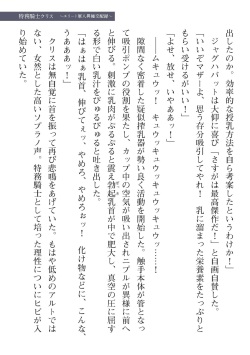 特務騎士クリス ～エリート軍人異種交配録～
出したのか。効率的な授乳方法を自ら考案したというわけか！」
ジャグバットは大仰に喜び「さすがは最高傑作だ！」と自画自賛した。
「いいぞマザーよ、思う存分吸引してやれ！　乳に溜まった栄養素をたっぷりと
もらい受けるがいい！」
「よせ、放せ、いいいああっ！」
――ムキュウゥ！　キュウッキュウッキュウッ……！
隙間なく密着した疑似搾乳器が勢い良く活動を開始した。触手本体が管となっ
て吸引ポンプの役割を果たし、カップ中の空気が吸い出されニプルが異様に前へ
と伸びる。刺激に乳肉がぶるぶると震え勃起乳首が中で肥大し、真空の圧に屈す
る形で白い乳汁をびゅるびゅると吐き出した。
「はぁはぁ乳首、伸びてぇっ、やめろ、やめろぉッ！　化け物などに、こんな、
うああぁっ！」
クリスは無自覚に首を振って再び悲鳴をあげていた。もはや低めのアルトでは
ない、女然とした高いソプラノ声。特務騎士として培った理性についにヒビが入
り始めていた。